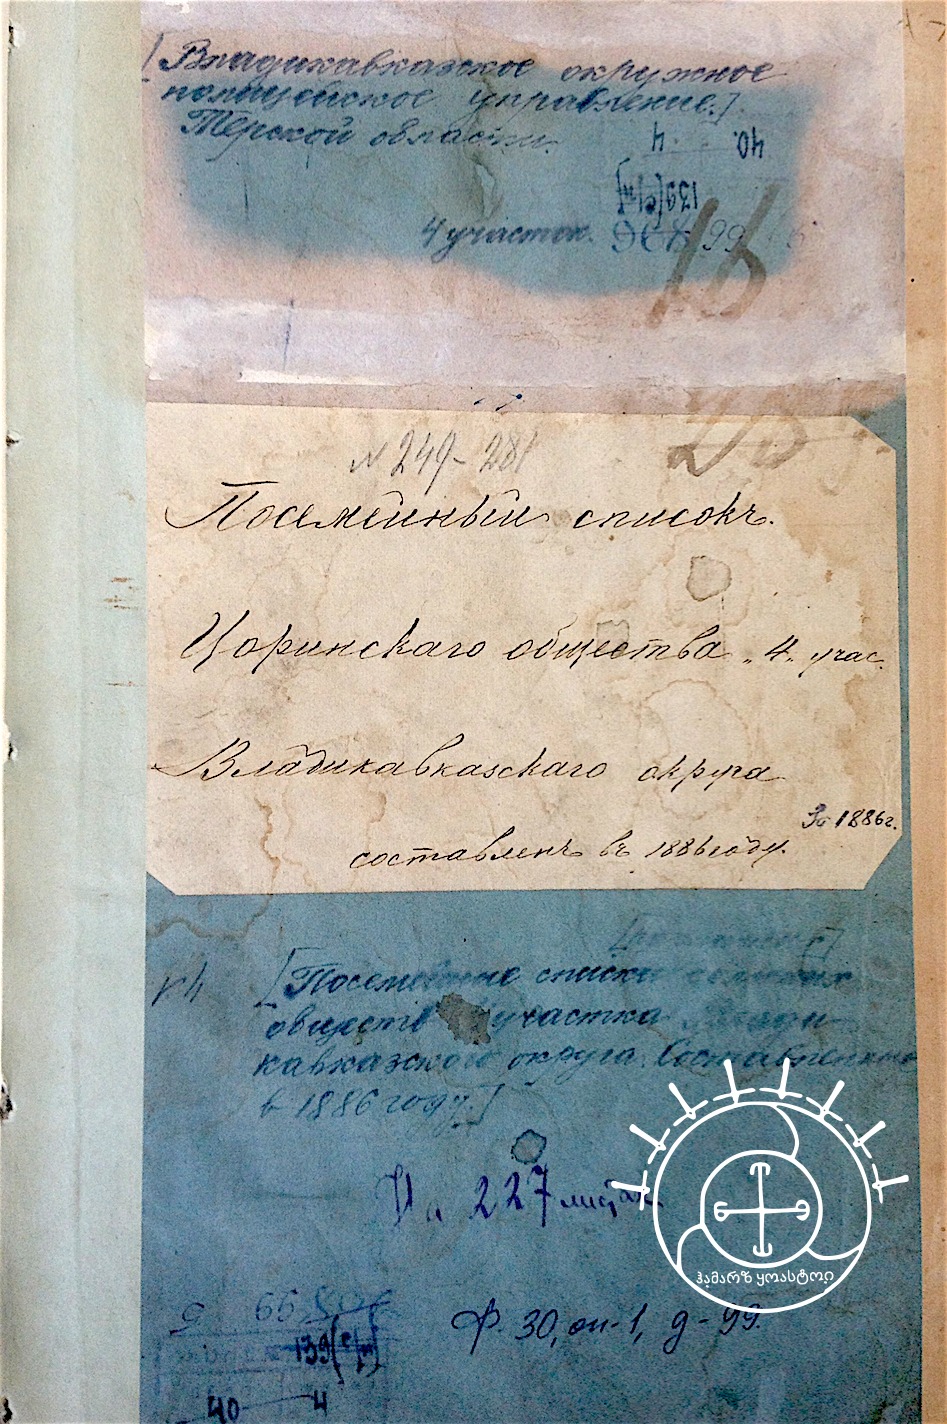 [Владикавказское окружное
полицейское управление.]
Терской области.
40. 4
139(с/т)
4 участок.
99
16
N 249-281
Посемейный списокъ.
Цоринскаго общества „4„ учас.
Владикавказскаго округа
За 1886г.
составленъ въ 1886 году.
[Посемейные списки
обществ участка Влади-
кавказского округа. Составленные
в 1886 году.]
На 227 листах
Ф. 30, оп-1, д-99.
99
139(с/т)
40 4
ჰამარზ ყოასტოჲ